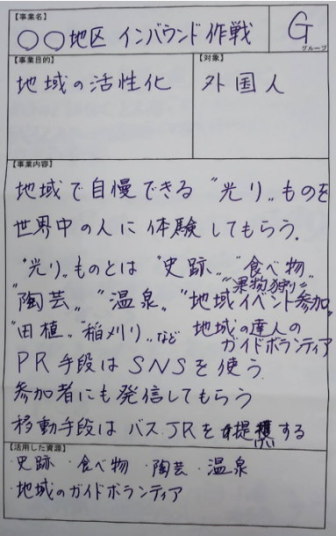 【事業名】
○○地区 インバウンド作戦
G
グループ
【事業目的】
地域の活性化
【対象】
外国人
【事業内容】
地域で自慢できる "光り" ものを
世界中の人に体験してもらう.
"光り" ものとは "史跡" "食べ物"
"果物狩り"
"陶芸" "温泉" "地域イベント参加"
"田植" "稲刈り" など 地域の達人の
ガイドボランティア
PR手段はSNSを使う.
参加者にも発信してもらう
移動手段はバス.JRを提携する
けい
【活用した資源】
・史跡 ・食べ物 ・陶芸 ・温泉
・地域のガイドボランティア